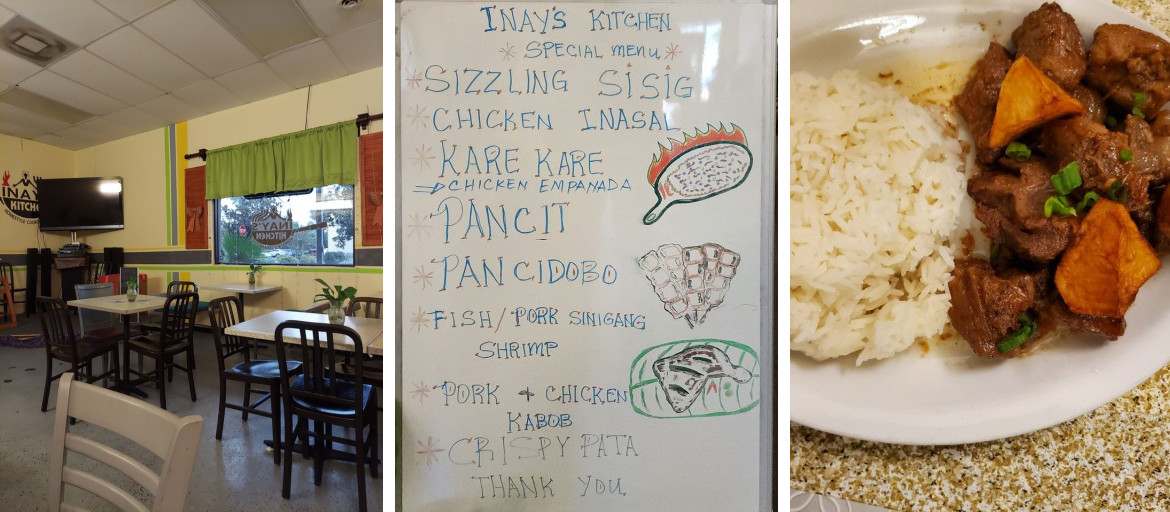 INAY'S
KITCHEN
INAY'S
KITCHEN
INAY'S KITCHEN
SPECIAL MENU
SIZZLING SISIG
CHICKEN INASAL
KARE KARE
CHICKEN EMPANADA
PANCIT
PANCIDOBO
FISH/PORK SINIGANG
SHRIMP
PORK & CHICKEN
KABOB
CRISPY PATA
THANK YOU.